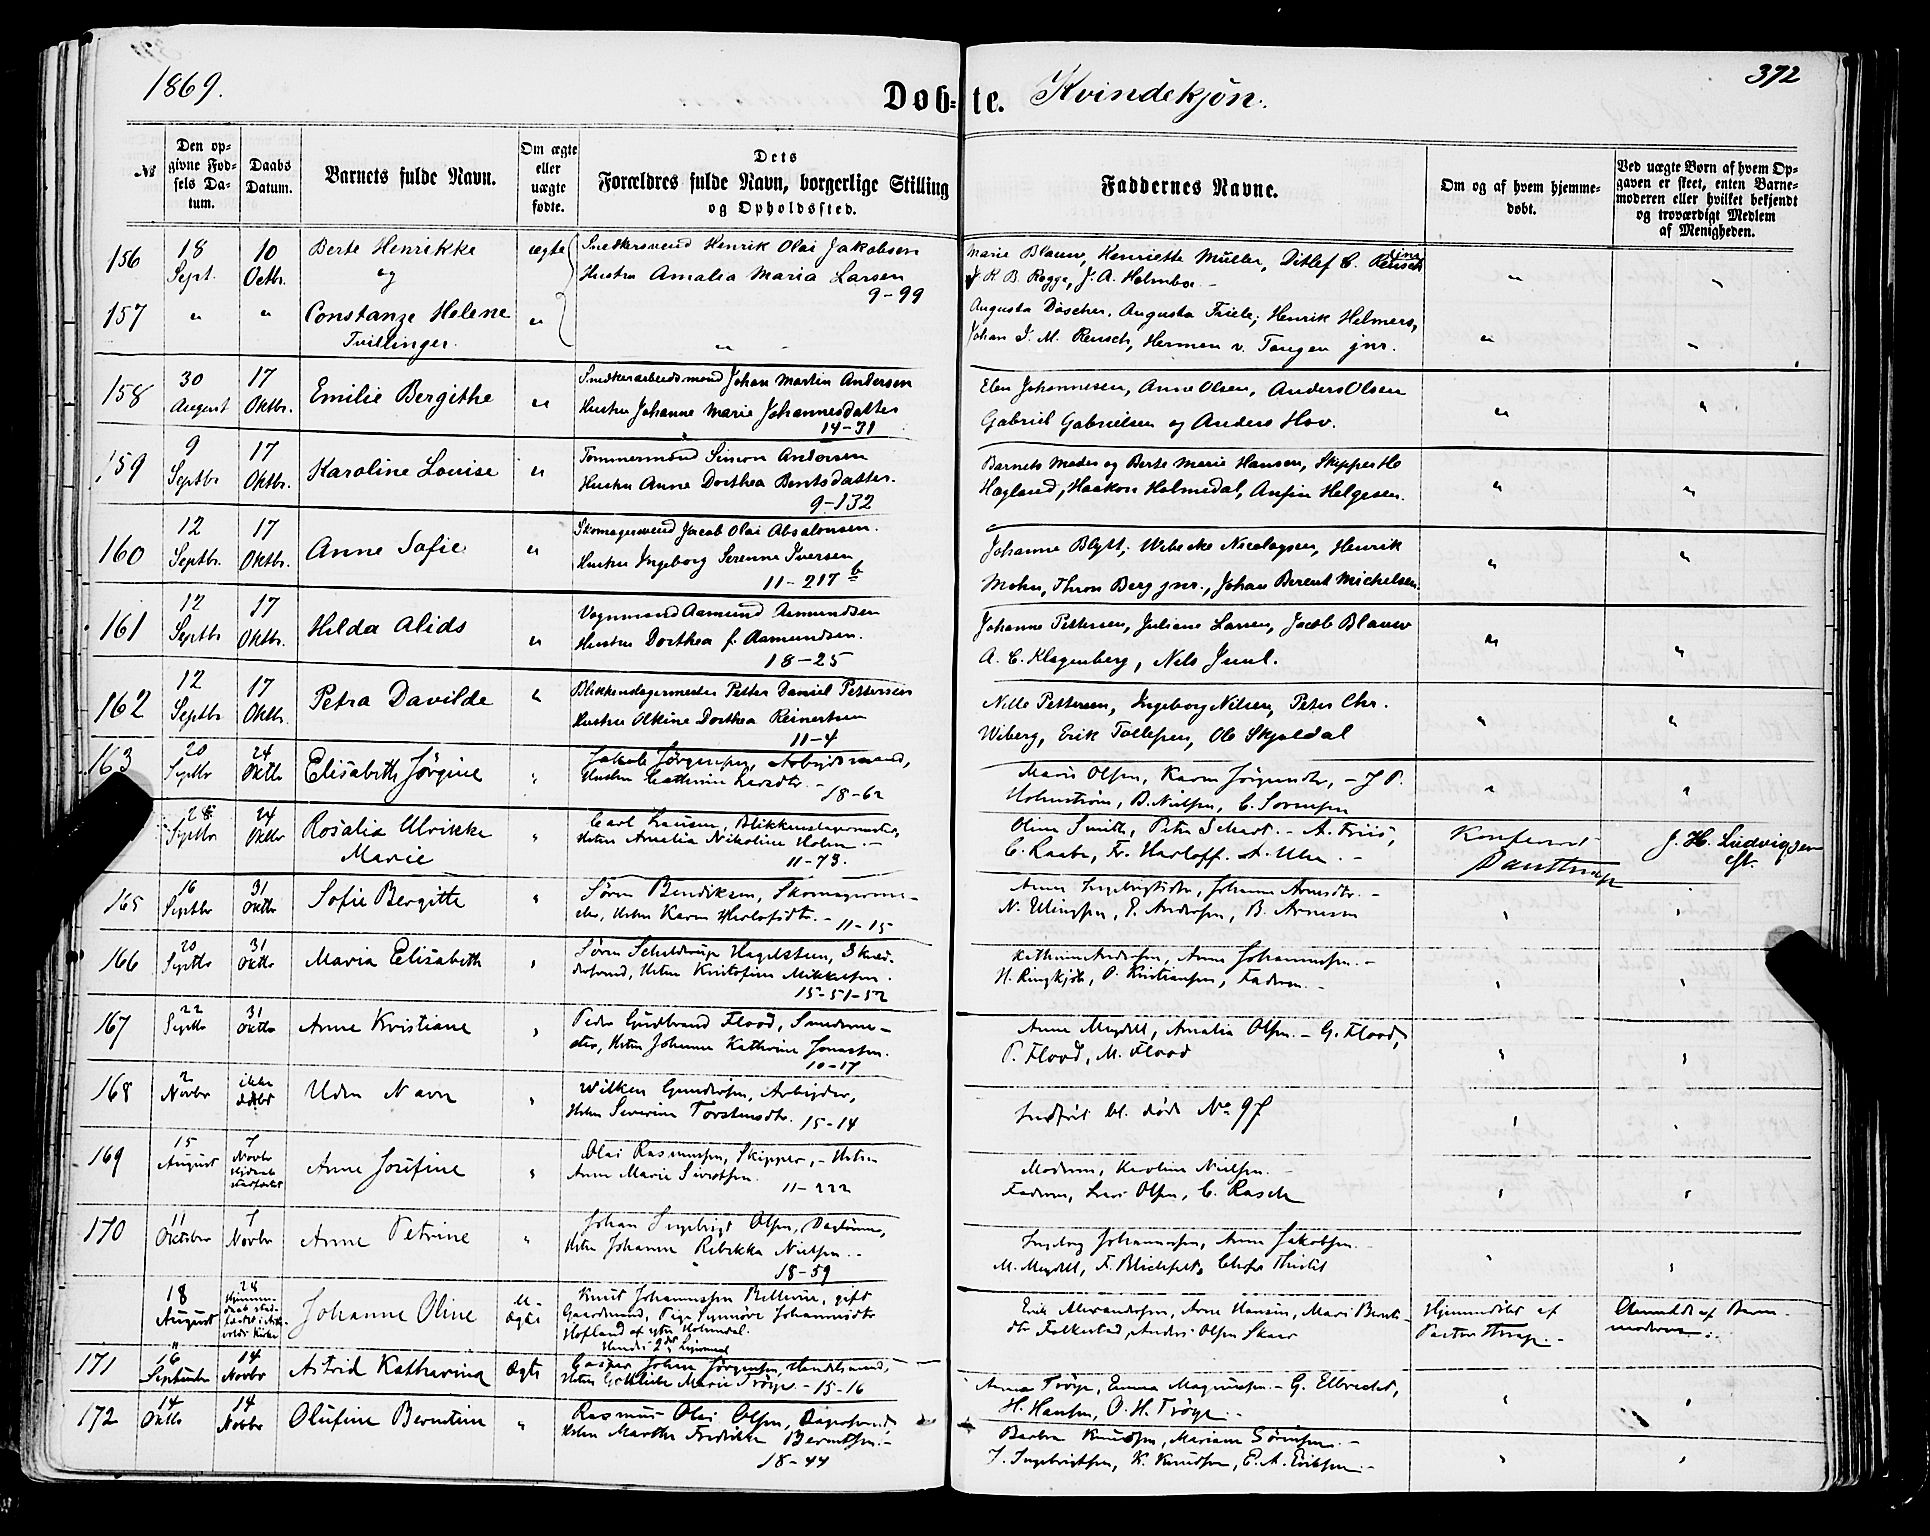 1869.
Døb-te. Kvindekjøn.
372
№
Den opgivne Fødsels Datum.
Daabs Datum.
Barnets fulde Navn.
Om ægte eller uægte fødte.
Dets
Forældres fulde Navn, borgerlige Stilling
og Opholdssted.
Faddernes Navne.
Om og af hvem hjemmedøbt.
Ved uægte Børn af hvem Opgaven er skeet, enten Barnemoderen eller hvilket bekjendt og troværdigt Medlem af Menigheden.
156 18 Sept. 10 Octbr. Berte Henrikke og ægte
Snedkersvend Henrik Olai Jakobsen
Hustru Amalia Maria Larsen
9-99
Marie Blauw, Henriette Müller, Ditlef C. Rensch
J K B. Rogge, J. A. Holmboe
157 " " Constanze Helene "
Tvillinger.
Augusta Döscher, Augusta Friele, Henrik Helmers,
Johan I. M. Rensch, Herman v. Tangen jnr.
158 30 August 17 Oktbr. Emilie Bergithe "
Snedkerarbeidsmand Johan Martin Andersen
Hustru Johanne Marie Johannesdatter
14-31
Elen Johannesen, Anne Olsen, Anders Olsen
Gabriel Gabrielsen og Anders Hov.
159 9 Septbr 17 Oktbr. Karoline Louise "
Tømmermand Simon Andersen
Hustru Anne Dorthea Berntsdatter.
9-132
Barnets Moder og Berte Marie Hansen, Skipper
Hagland, Haakon Holmedal, Anfin Helgesen.
160 12 Septbr. 17 Oktbr. Anne Sofie "
Skomagersvend Jacob Olai Absalonsen.
Hustru Ingeborg Serenne Iversen
11-217 b
Johanne Blytt, Wibecke Nicolaysen, Henrik
Mohn, Thron Berg jnr., Johan Berent Michelsen.
161 12 Septbr. 17 Oktbr. Hilda Alida "
Vognmand Aamund Aamundsen
Hustru Dorthea f. Aamundsen.
18-25
Johanne Pettersen, Juliane Larsen, Jacob Blauw
A. C. Klagenberg, Nels Juul.
162 12 Septbr 17 Oktbr. Petra Davilde "
Blikkenslagermester Petter Daniel Pettersen
Hustru Olkine Dorthea Reinertsen
11-4
Nille Pettersen, Ingeborg Nilsen, Peter Chr.
Wiberg, Erik Tollefsen, Ole Skjoldal
163 20 Septbr 24 Oktbr Elisabeth Jørgine "
Jakob Jørgensen, Arbeidsmand,
Hustru Cathrine Larsdtr. -
18-62
Marie Olsen, Karen Jørgensdtr, - J P.
Holmstrøm, B. Nielsen, C. Sørensen
28 Septbr 24 Oktbr Rosalia Ulrikke Marie "
Carl Hansen, Blikkenslagermester,
Hstru Amalia Nikoline Holm. -
11-73.
Oline Smith, Petra Schart. - A. Friis,
C. Raabe, Fr. Harloff. A. Uhr. -
J. H. Ludvigsen
165 16 Septbr 31 Oktbr Sofie Bergitte "
Søren Bendiksen, Skomagerme-
ster, Hstru Karen
11-15
Anna Ingebrigtsdtr, Johanne Arnesdtr. -
P. Andersen, B. Arnesen
166 20 Septbr 31 Oktbr Maria Elisabeth "
Søren Schieldrup Hagelsteen, Skræd-
dersvend, Hstru Kristofine Mikkelsen.
15-51-52
Kathrine Andersen, Anne Johannessen. -
P. Kristiansen, Faderen. -
167 22 Septbr 31 Oktbr Anne Kristiane "
Peder Gudbrand Flood, Smedeme-
ster, Hstru Johanne Kathrine Jonassen.
10-17
Anne Mygdell, Amalia Olsen. - G. Flood,
P. Flood, M. Flood
168 2 Novbr ikke døbt Uden Navn "
Wilken Gundersen, Arbeider,
Hstru Severine Torstensdtr.
15-14
Indført bl. døde No 97
169 15 August 7 Novbr Anne Josefine "
Olai Rasmussen, Skipper, - Hstru
Anne Marie Sivertsen.
11-222
Moderen, Karoline Nielsen. -
Faderen, Lars Olsen, C. Rasch
170 11 Oktober 7 Novbr Anne Petrine "
Johan Ingebrigt Olsen, Dagtønner,
Hstru Johanna Rebekka Nielsen. -
18-59
Ingeborg Johannessen, Anne Jakobsen. -
M. Mygdell, F. Blichfeldt,
18 August 28 Johanne Oline U-ægte
Knut Johannessen Bellevue, gift
Gaardmand, Pige Synnøve Johannesdtr
Hofland af ytre Holmedal.
Hendes 2det Leiermaal
Erik Alexandersen, Arne Hansen, Mari Bernts-
dtr Folkestad, Anders Olsen Skaar
Hjemmedøbt af
Pastor
Anmeldt af Barne-
moderen.
171 16 September 14 Novbr Astrid Katharina Ægte
Casper Johan Jørgensen, Handelsmand,
Hstru Gothlieba Marie Trøye. - 15-16
Anna Trøye, Emma Magnussen. - G. Elbrecht,
H. Hansen, O. H. Trøye. -
172 14 Oktbr 14 Novbr Olufine Berntine "
Rasmus Olai Olsen, Bagersvend,
Hstru Marthe Fredrikke Berntsen. -
18-44
Barbra Knudsen, Mariane Sørensen. -
J. Ingebrigtsen, K. Knudsen, E. A. Eriksen. -